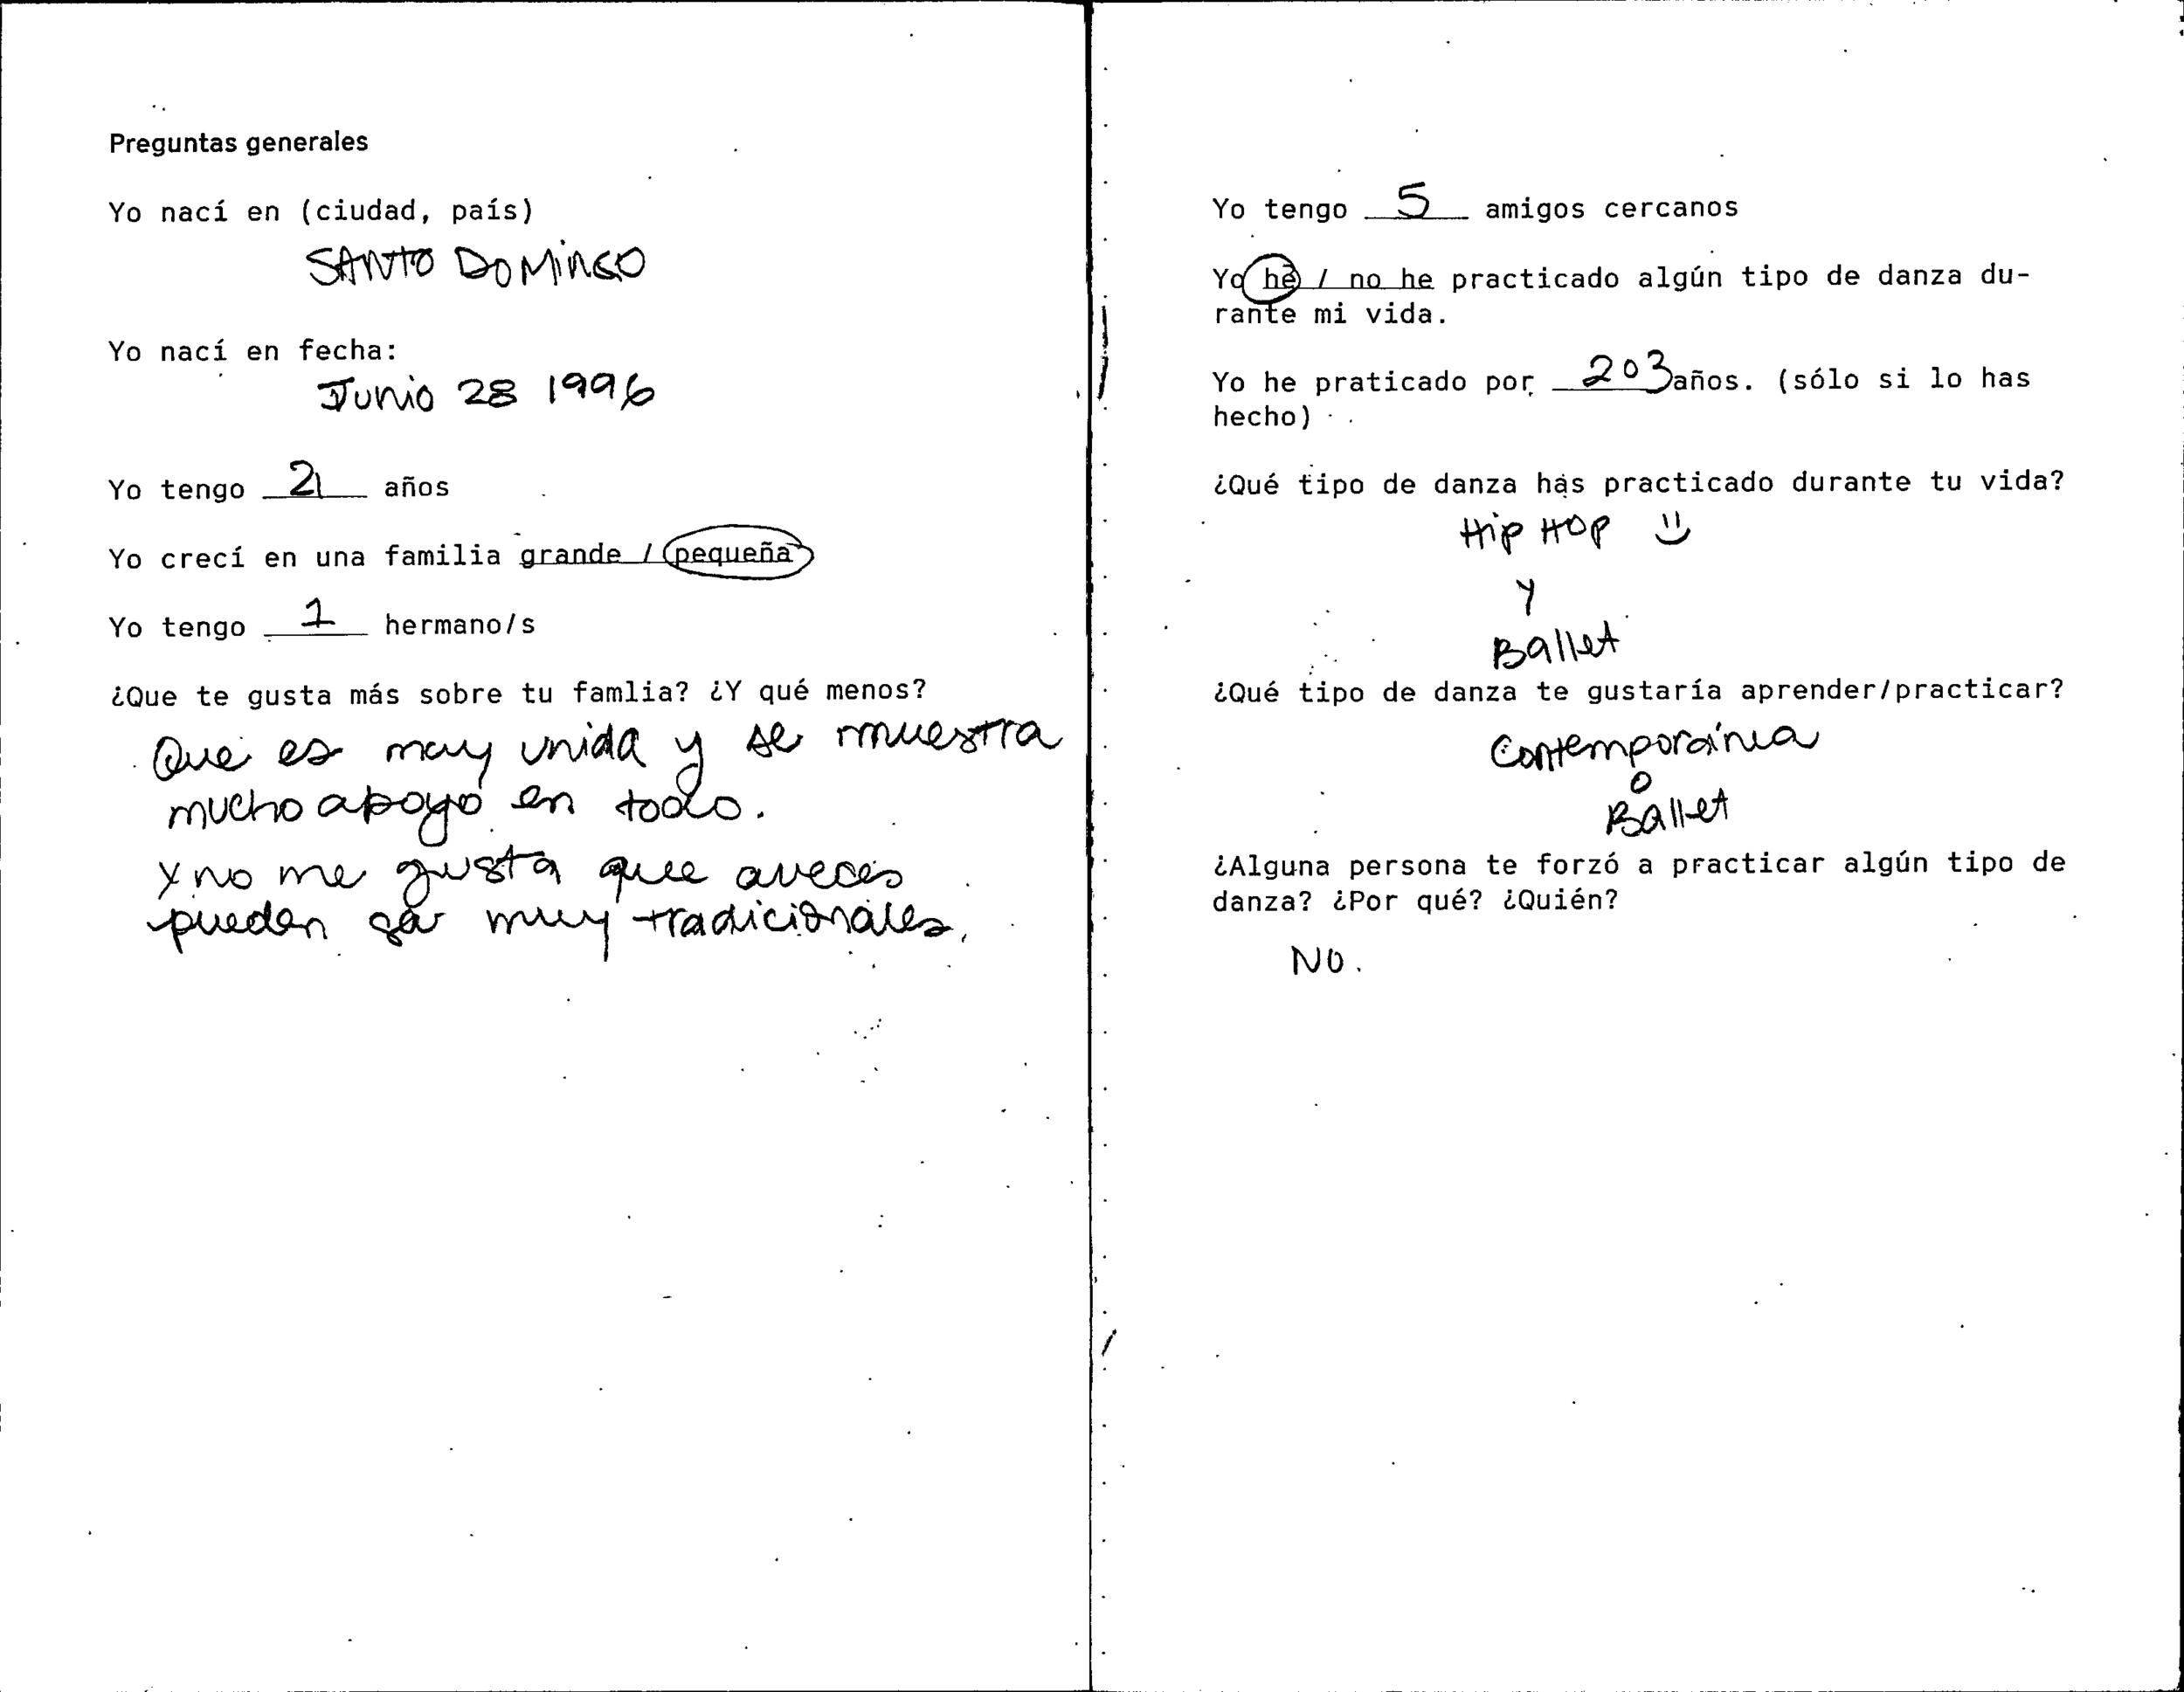 Preguntas generales
Yo nací en (ciudad, país)
SANTO DOMINGO
Yo nací en fecha:
Junio 28 1996
Yo tengo 21 años
Yo crecí en una familia grande / pequeña
Yo tengo 1 hermano/s
¿Que te gusta más sobre tu famlia? ¿Y qué menos?
Que es muy unida y se muestra
mucho apoyo en todo.
Y no me gusta que aveces
pueden ser muy tradicionales.
Yo tengo 5 amigos cercanos
Yo he / no he practicado algún tipo de danza du-
rante mi vida.
Yo he praticado por 2 o 3 años. (sólo si lo has
hecho)
¿Qué tipo de danza has practicado durante tu vida?
Hip HOP
Y
Ballet
¿Qué tipo de danza te gustaría aprender/practicar?
Contemporánea
O
Ballet
¿Alguna persona te forzó a practicar algún tipo de
danza? ¿Por qué? ¿Quién?
NO.